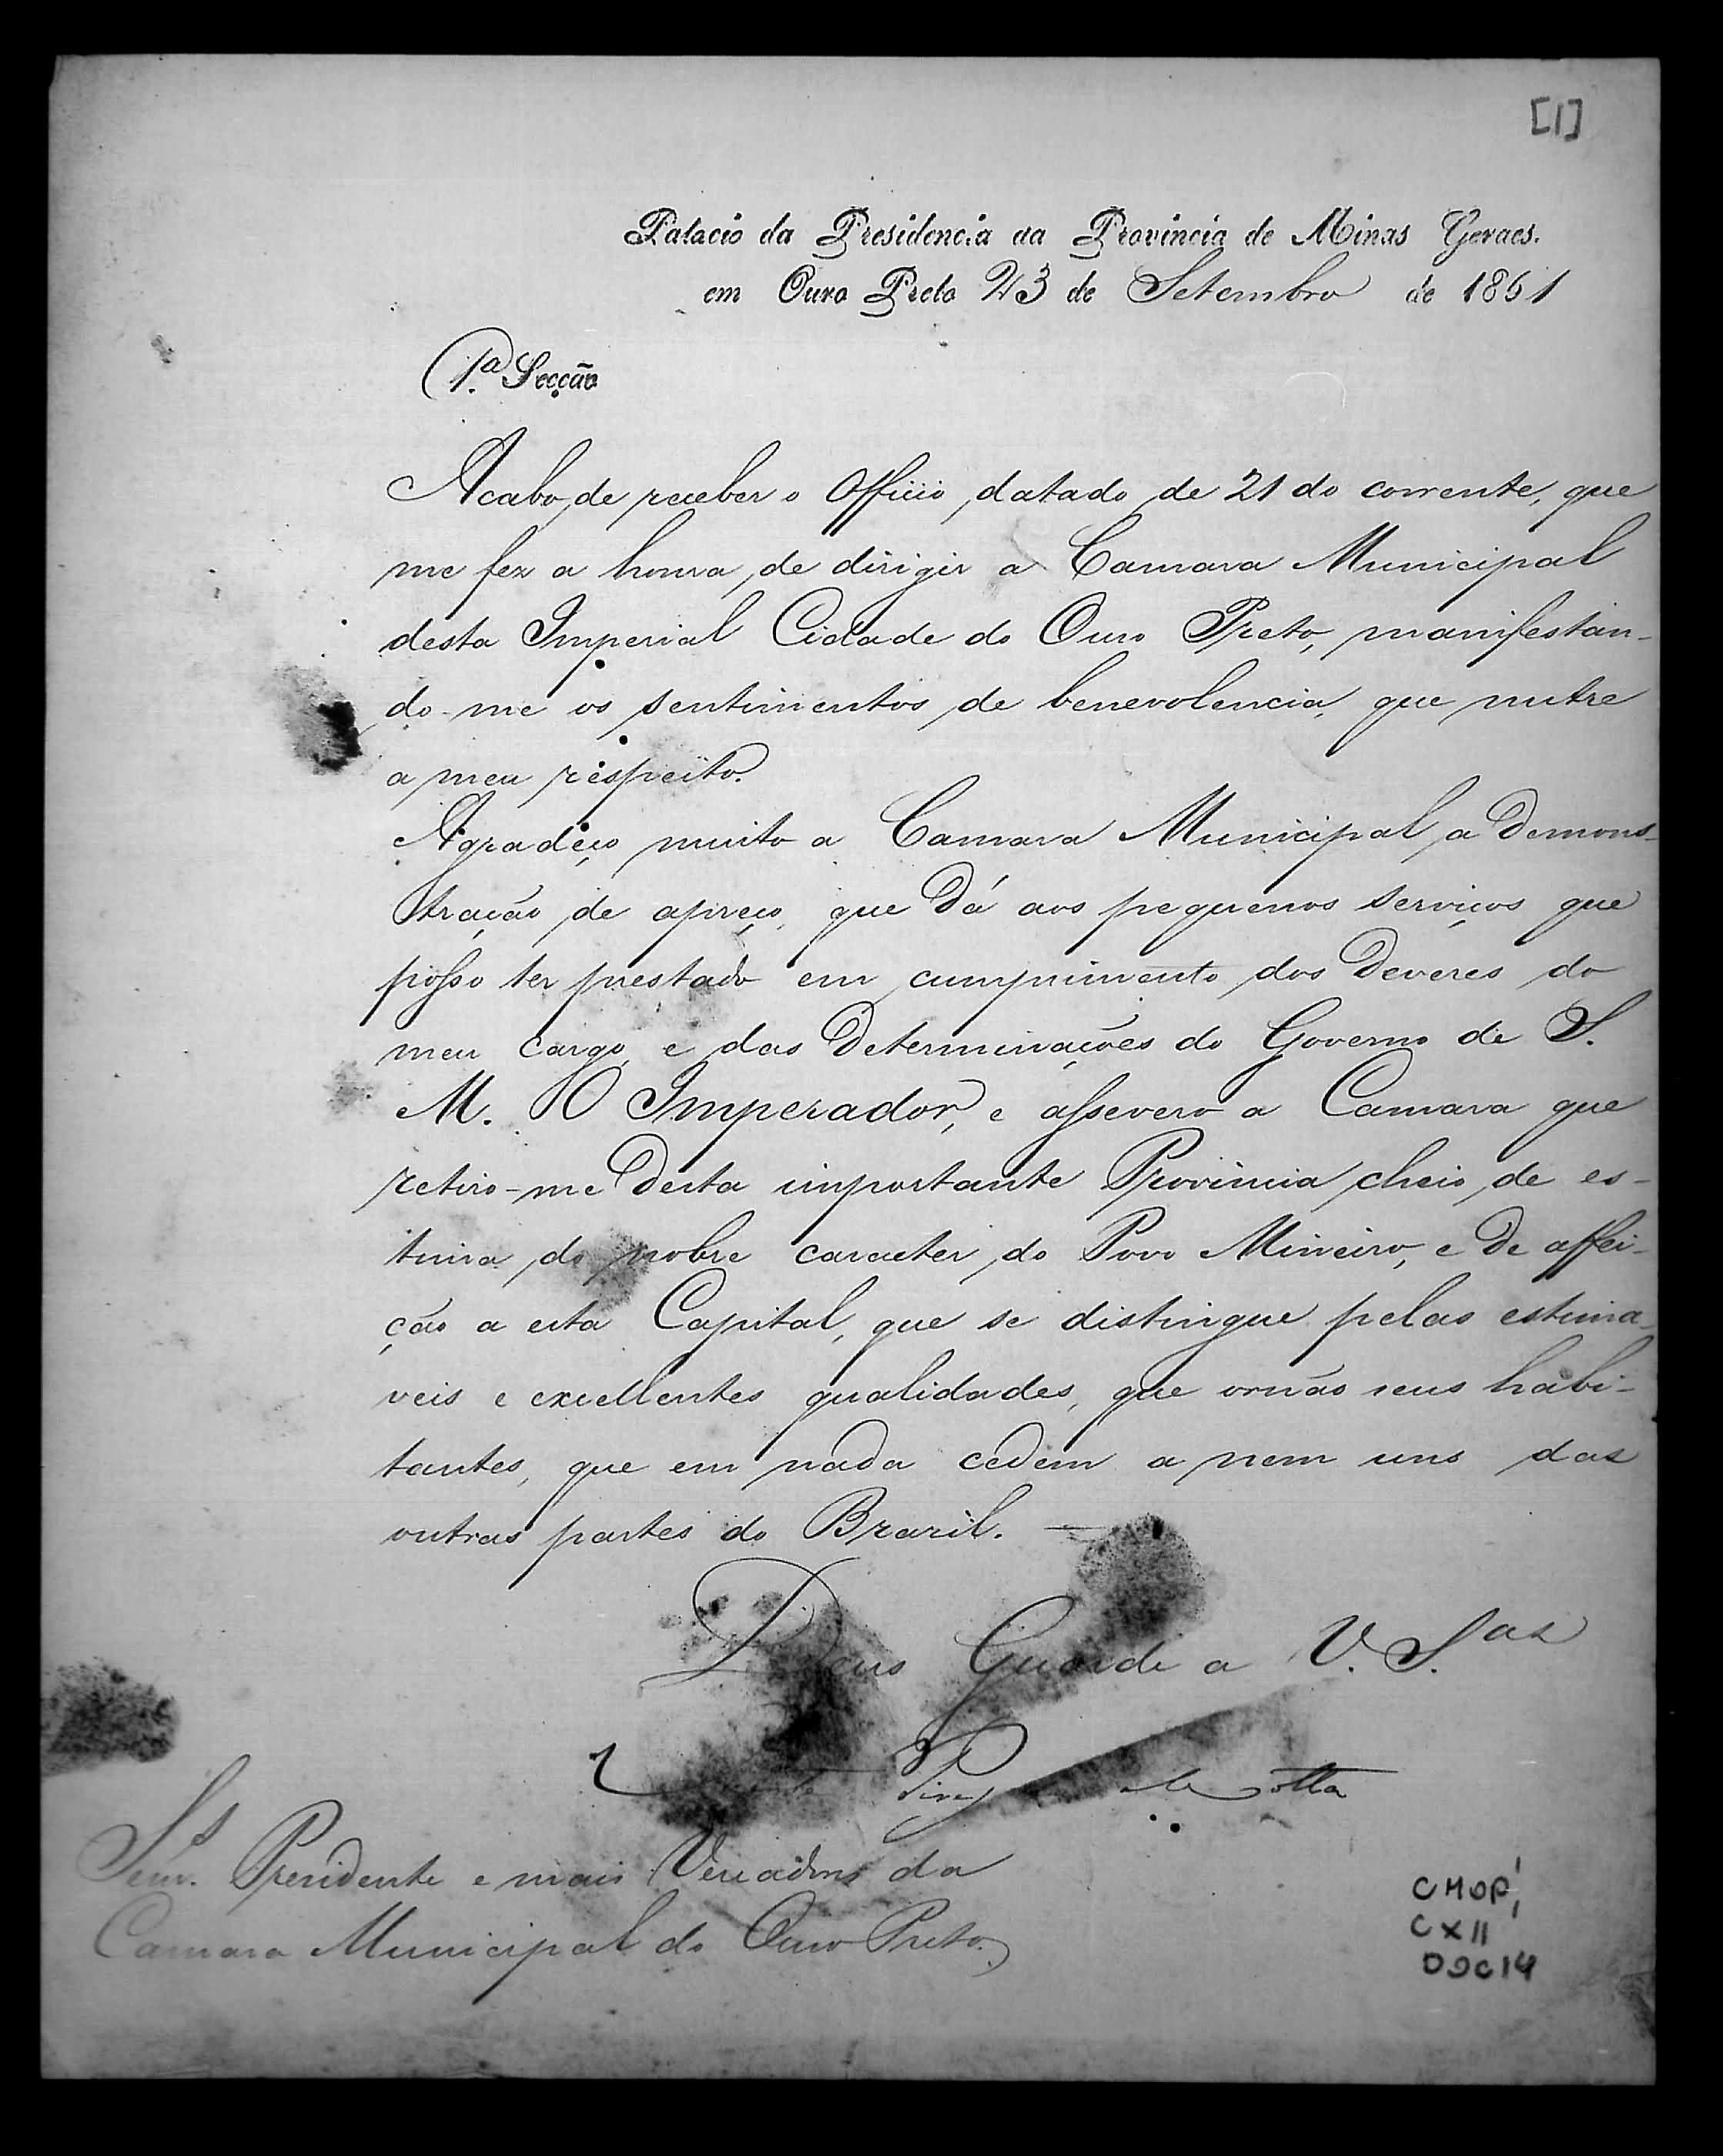 [1]
Palacio da Presidencia da Provincia de Minas Geraes.
em Ouro Preto 23 de Setembro de 1861
1.ª Secção
Acabo de receber o Officio datado de 21 do corrente, que
me fez a honra de dirigir a Camara Municipal
desta Imperial Cidade do Ouro Preto, manifestan-
do-me os sentimentos de benevolencia, que nutre
a meu respeito.
Agradeço muito a Camara Municipal a demons-
tração de apreço, que dá aos pequenos serviços que
posso ter prestado em cumprimento dos deveres do
meu cargo, e das Determinações do Governo de S.
M. O Imperador, e assevero a Camara que
retiro-me desta importante Provincia cheio de es-
tima do nobre caracter do Povo Mineiro, e de affei-
ção a esta Capital, que se distingue pelas estima-
veis e excellentes qualidades, que ornão seus habi-
tantes, que em nada cedem a nem uns das
outras partes do Brazil. —
Deus Guarde a V. S.as
Pires da Motta
Snrs. Presidente e mais Vereadores da
Camara Municipal do Ouro Preto.
CMOP,
CX11
DOC14